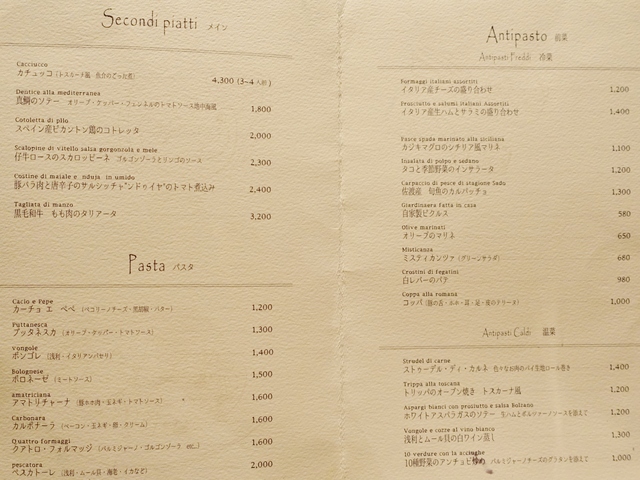 Secondi piatti メイン
Cacciucco
カチュッコ (トスカーナ風 魚介のごった煮) 4,300 (3~4人前)
Dentice alla mediterranea
真鯛のソテー オリーブ・ケッパー・フェンネルのトマトソース地中海風 1,800
Cotoletta di pllo
スペイン産ピカントン鶏のコトレッタ 2,000
Scalopine di vitello salsa gorgoncola e mele
仔牛ロースのスカロッピーネ ゴルゴンゾーラとリンゴのソース 2,300
Costine di maiale e nduja in umido
豚バラ肉と唐辛子のサルシッチャ"ンドゥイヤ"のトマト煮込み 2,400
Tagliata di manzo
黒毛和牛 もも肉のタリアータ 3,200
Pasta パスタ
Cacio e Pepe
カーチョ エ ペペ (ペコリーノチーズ・黒胡椒・バター) 1,200
Puttanesca
プッタネスカ (オリーブ・ケッパー・トマトソース) 1,300
vongole
ボンゴレ (浅利・イタリアンパセリ) 1,400
Bolognese
ボロネーゼ (ミートソース) 1,500
amatriciana
アマトリチャーナ (豚ホホ肉・玉ネギ・トマトソース) 1,600
Carbonara
カルボナーラ (ベーコン・玉ネギ・卵・クリーム) 1,600
Quattro formaggi
クアトロ・フォルマッジ (パルミジャーノ・ゴルゴンゾーラ etc,) 1,600
pescatora
ペスカトーレ (浅利・ムール貝・海老・イカなど) 2,000
Antipasto 前菜
Antipasti Freddi 冷菜
Formaggi italiani assortiti
イタリア産チーズの盛り合わせ 1,200
Prosciutto e salumi italiani Assortiti
イタリア産生ハムとサラミの盛り合わせ 1,400
Pesce spada marinato alla siciliana
カジキマグロのシチリア風マリネ 1,100
Insalata di polpo e sedano
タコと季節野菜のインサラータ 1,200
Carpaccio di pesce di stagione Sadu
佐渡産 旬魚のカルパッチョ 1,300
Giardiniera fatta in casa
自家製ピクルス 580
Olive marinati
オリーブのマリネ 650
Misticanza
ミスティカンツァ (グリーンサラダ) 680
Crostini di fegatini
白レバーのパテ 980
Coppa alla romana
コッパ (豚の舌・ホホ・耳・足・皮のテリーヌ) 1,000
Antipasti Caldi 温菜
Strudel di carne
ストゥーデル・ディ・カルネ 色々なお肉のパイ生地ロール巻き 1,400
Trippa alla toscana
トリッパのオーブン焼き トスカーナ風 1,200
Aspargi bianci con prosiutto e salsa Bolzano
ホワイトアスパラガスのソテー 生ハムとボルツァーノソースを添えて 1,200
Vongole e cozze al vino bianco
浅利とムール貝の白ワイン蒸し 1,300
10 verdure con la acciughe
10種野菜のアンチョビ炒め パルミジャーノチーズのグラタンを添えて 1,000